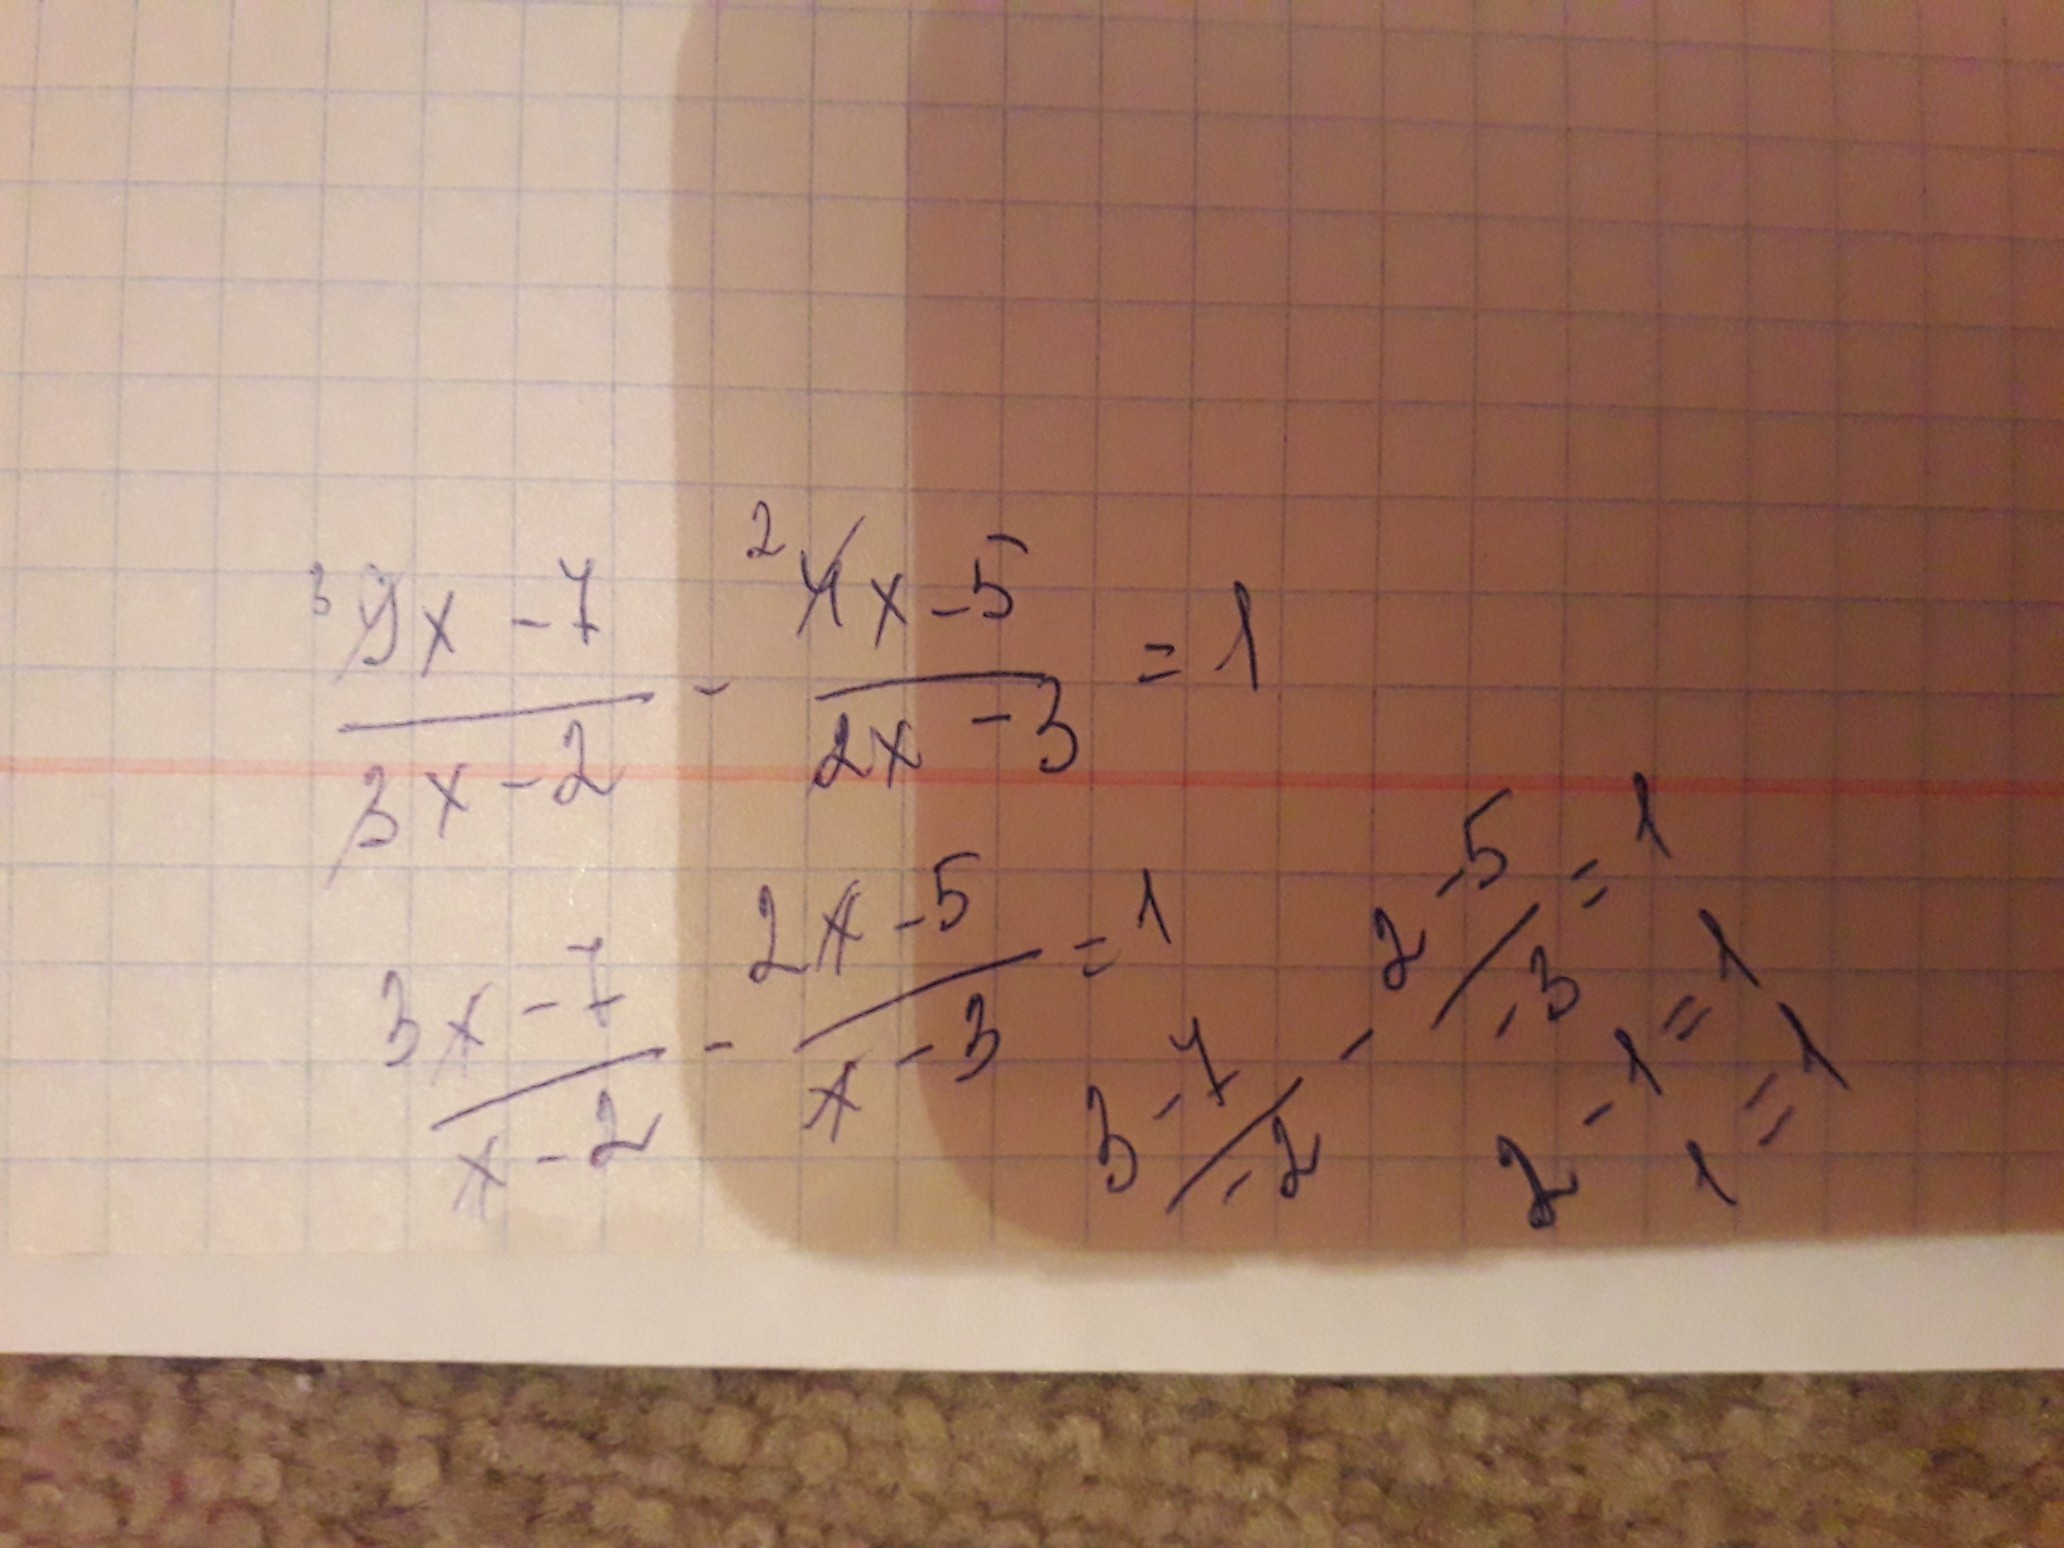 ³9x - 7 / 3x - 2 - ²4x - 5 / 2x - 3 = 1
3x - 7 / x - 2 - 2x - 5 / x - 3 = 1
3 - 7 / - 2 - 2 - 5 / - 3 = 1
2 - 1 = 1
1 = 1